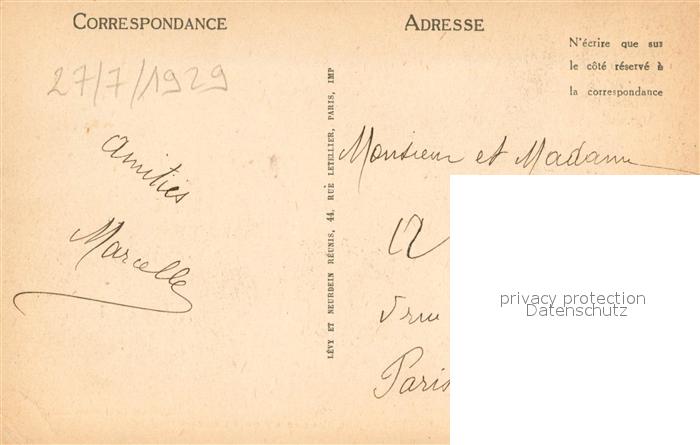 CORRESPONDANCE
ADRESSE
N'écrire que sur
le côté réservé à
la correspondance
27/7/1929
Amitiés
Marcelle
LÉVY ET NEURDEIN RÉUNIS, 44, RUE LETELLIER, PARIS, IMP
Monsieur et Madame
12
5 rue
Paris
privacy protection
Datenschutz